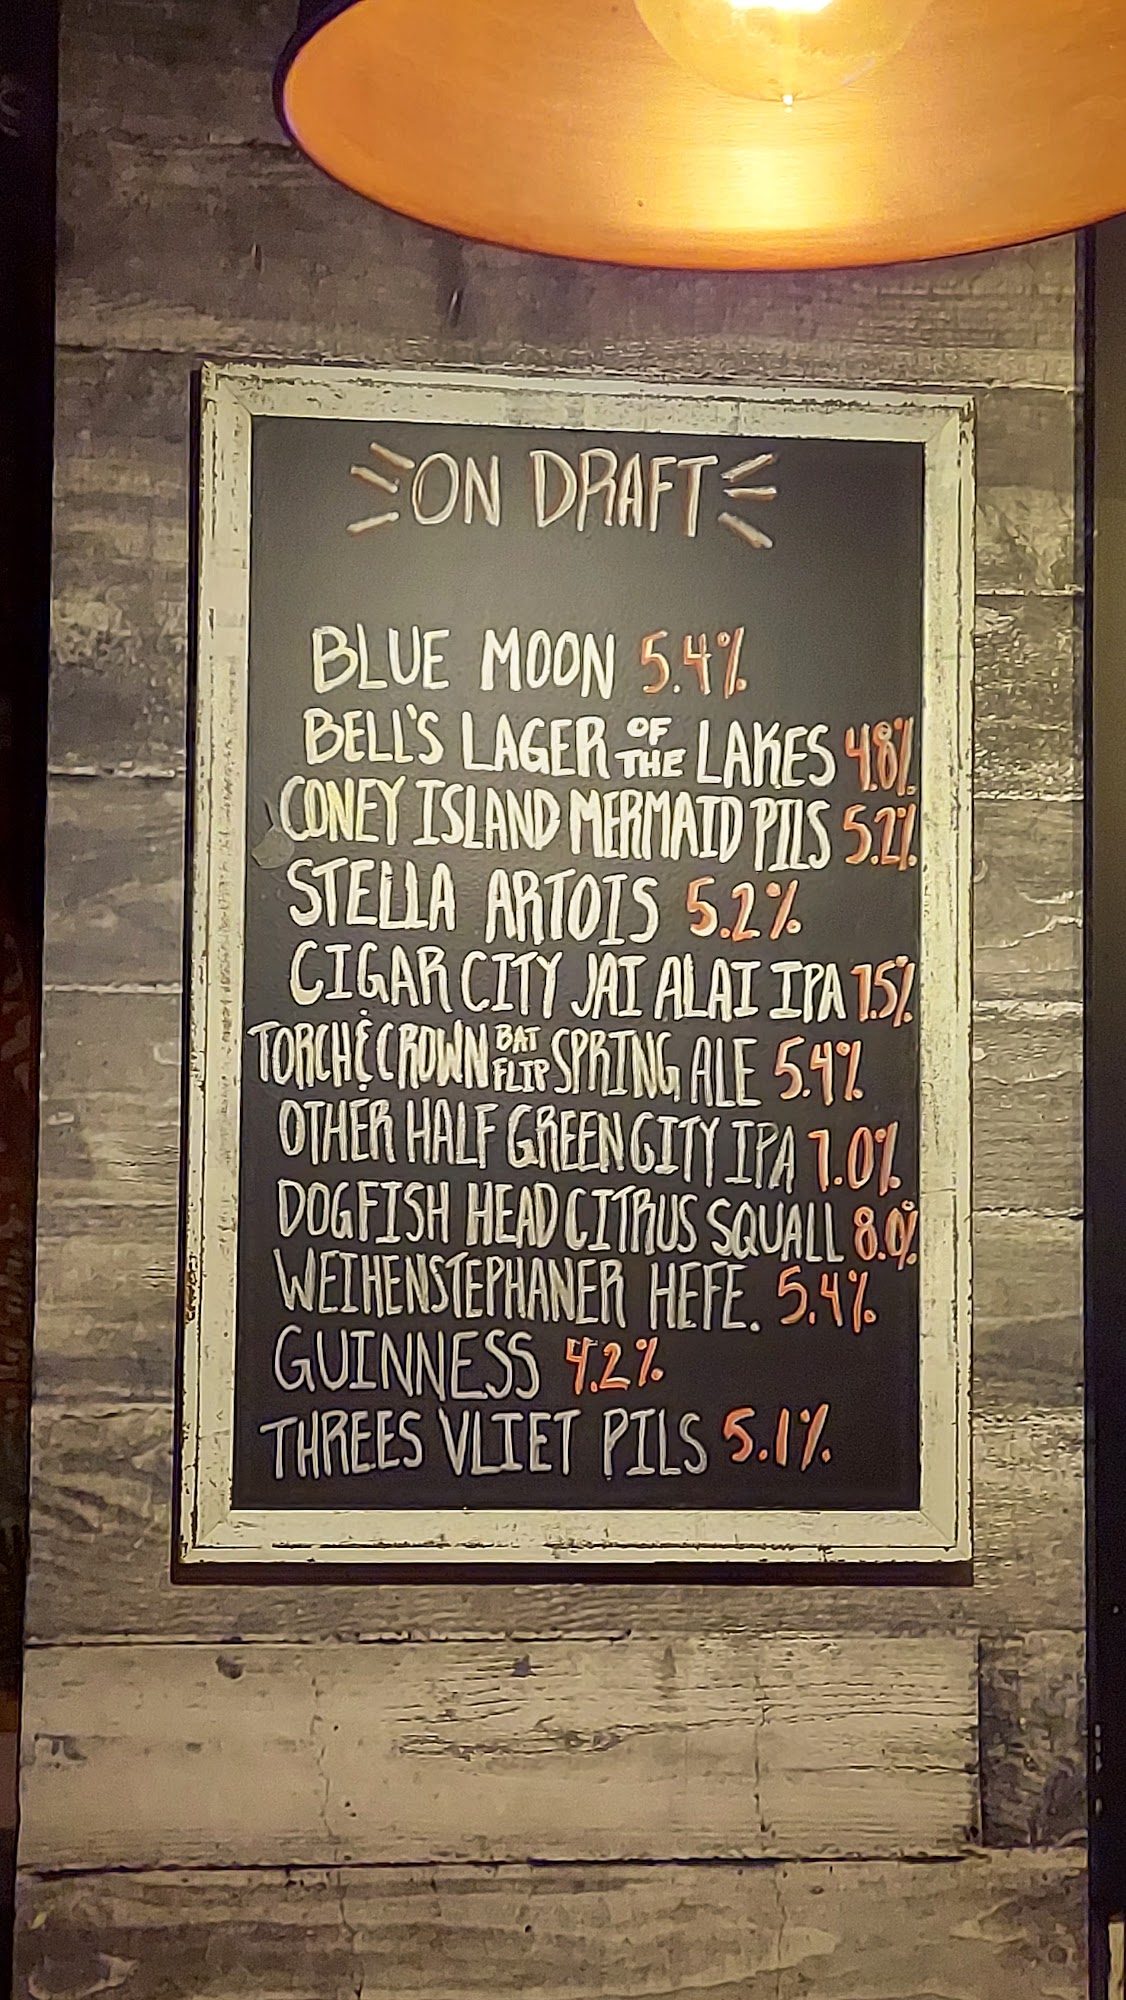 ON DRAFT
BLUE MOON 5.4%
BELL'S LAGER OF THE LAKES 4.8%
CONEY ISLAND MERMAID PILS 5.2%
STELLA ARTOIS 5.2%
CIGAR CITY JAI ALAI IPA 7.5%
TORCH & CROWN BAT FLIP SPRING ALE 5.4%
OTHER HALF GREEN CITY IPA 7.0%
DOGFISH HEAD CITRUS SQUALL 8.0%
WEIHENSTEPHANER HEFE. 5.4%
GUINNESS 4.2%
THREES VLIET PILS 5.1%